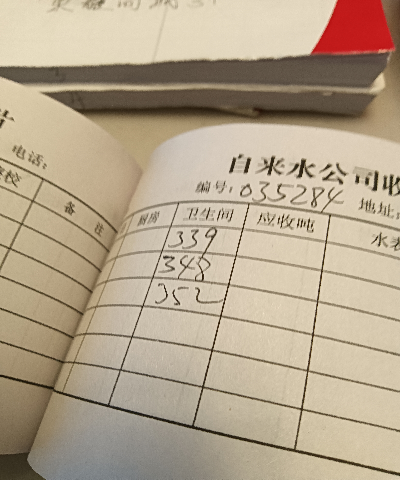 电话：
备注
自来水公司收
编号：035284 地址：
厨房 卫生间 应收吨 水表
339
348
352